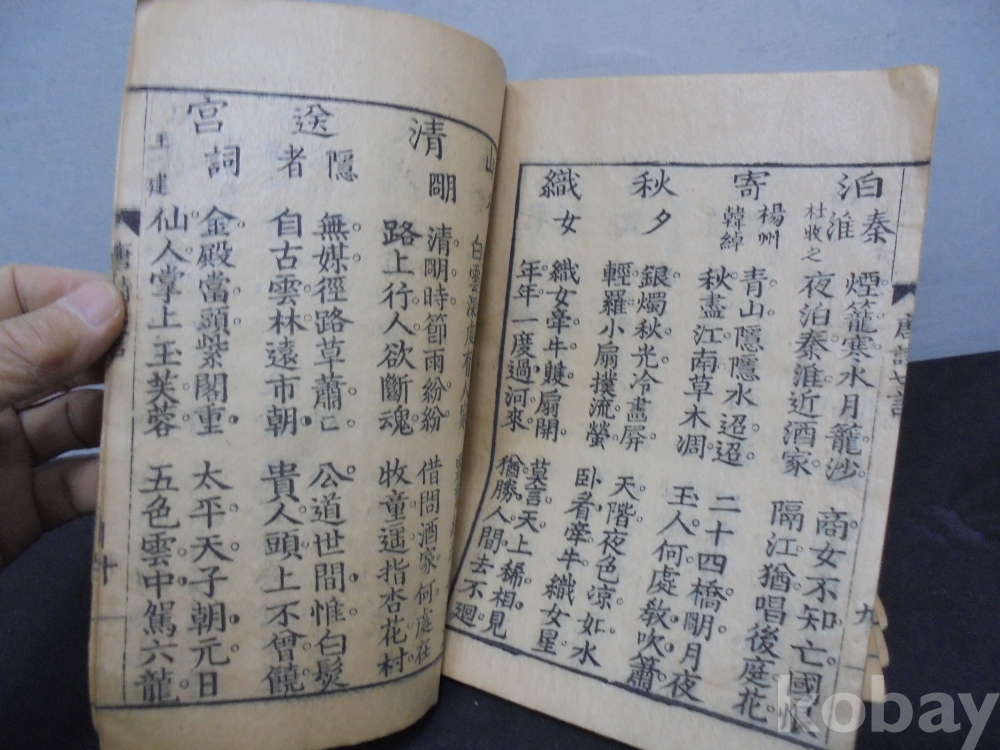 唐詩七言
九
泊秦淮
杜牧之
煙籠寒水月籠沙
夜泊秦淮近酒家
商女不知亡國恨
隔江猶唱後庭花
寄楊州韓綽
青山隱隱水迢迢
秋盡江南草木凋
二十四橋明月夜
玉人何處教吹簫
秋夕
銀燭秋光冷畫屏
輕羅小扇撲流螢
天階夜色凉如水
卧看牽牛織女星
織女
織女牽牛雙扇開
年年一度過河來
莫言天上稀相見
猶勝人間去不廻
山
白雲深處有人家
清明
清明時節雨紛紛
路上行人欲斷魂
借問酒家何處在
牧童遥指杏花村
送隱者
無媒徑路草蕭〻
自古雲林遠市朝
公道世間惟白髮
貴人頭上不曾饒
宮詞
王建
金殿當頭紫閣重
仙人掌上玉芙蓉
太平天子朝元日
五色雲中駕六龍
十
kobay